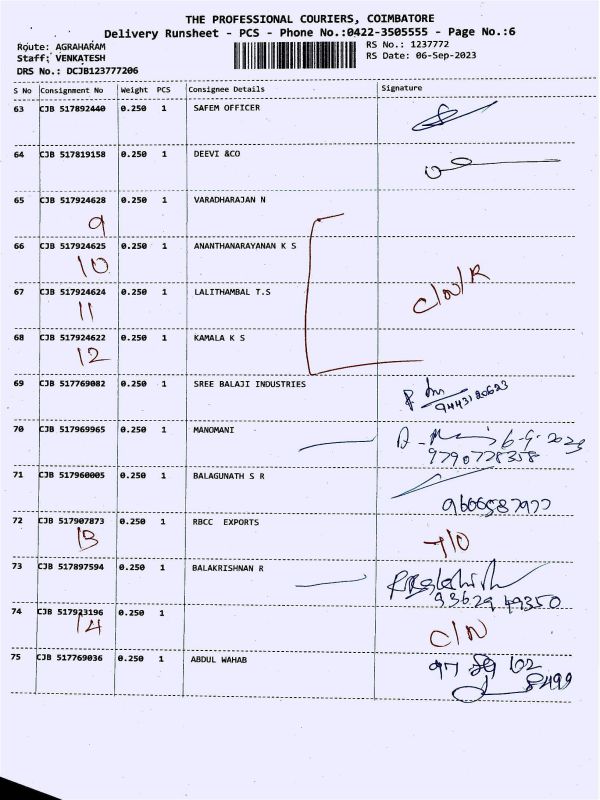 THE PROFESSIONAL COURIERS, COIMBATORE
Delivery Runsheet - PCS - Phone No.:0422-3505555 - Page No.:6
Route: AGRAHARAM RS No.: 1237772
Staff: VENKATESH RS Date: 06-Sep-2023
DRS No.: DCJB123777206
S No Consignment No Weight PCS Consignee Details Signature
63 CJB 517892440 0.250 1 SAFEM OFFICER
64 CJB 517819158 0.250 1 DEEVI &CO
65 CJB 517924628 0.250 1 VARADHARAJAN N
9
66 CJB 517924625 0.250 1 ANANTHANARAYANAN K S
10
C/N/R
67 CJB 517924624 0.250 1 LALITHAMBAL T.S
11
68 CJB 517924622 0.250 1 KAMALA K S
12
69 CJB 517769082 0.250 1 SREE BALAJI INDUSTRIES
9443120623
70 CJB 517969965 0.250 1 MANOMANI
6-9-2023
9790728358
71 CJB 517960005 0.250 1 BALAGUNATH S R
72 CJB 517907873 0.250 1 RBCC EXPORTS
13
73 CJB 517897594 0.250 1 BALAKRISHNAN R
93629 49350
74 CJB 517923196 0.250 1
14 C/N
75 CJB 517769036 0.250 1 ABDUL WAHAB
102
8499